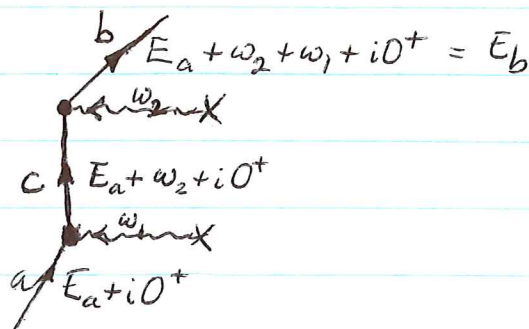 b E_a + ω₂ + ω₁ + i0⁺ = E_b
ω₂ X
c E_a + ω₂ + i0⁺
ω₁ X
a E_a + i0⁺